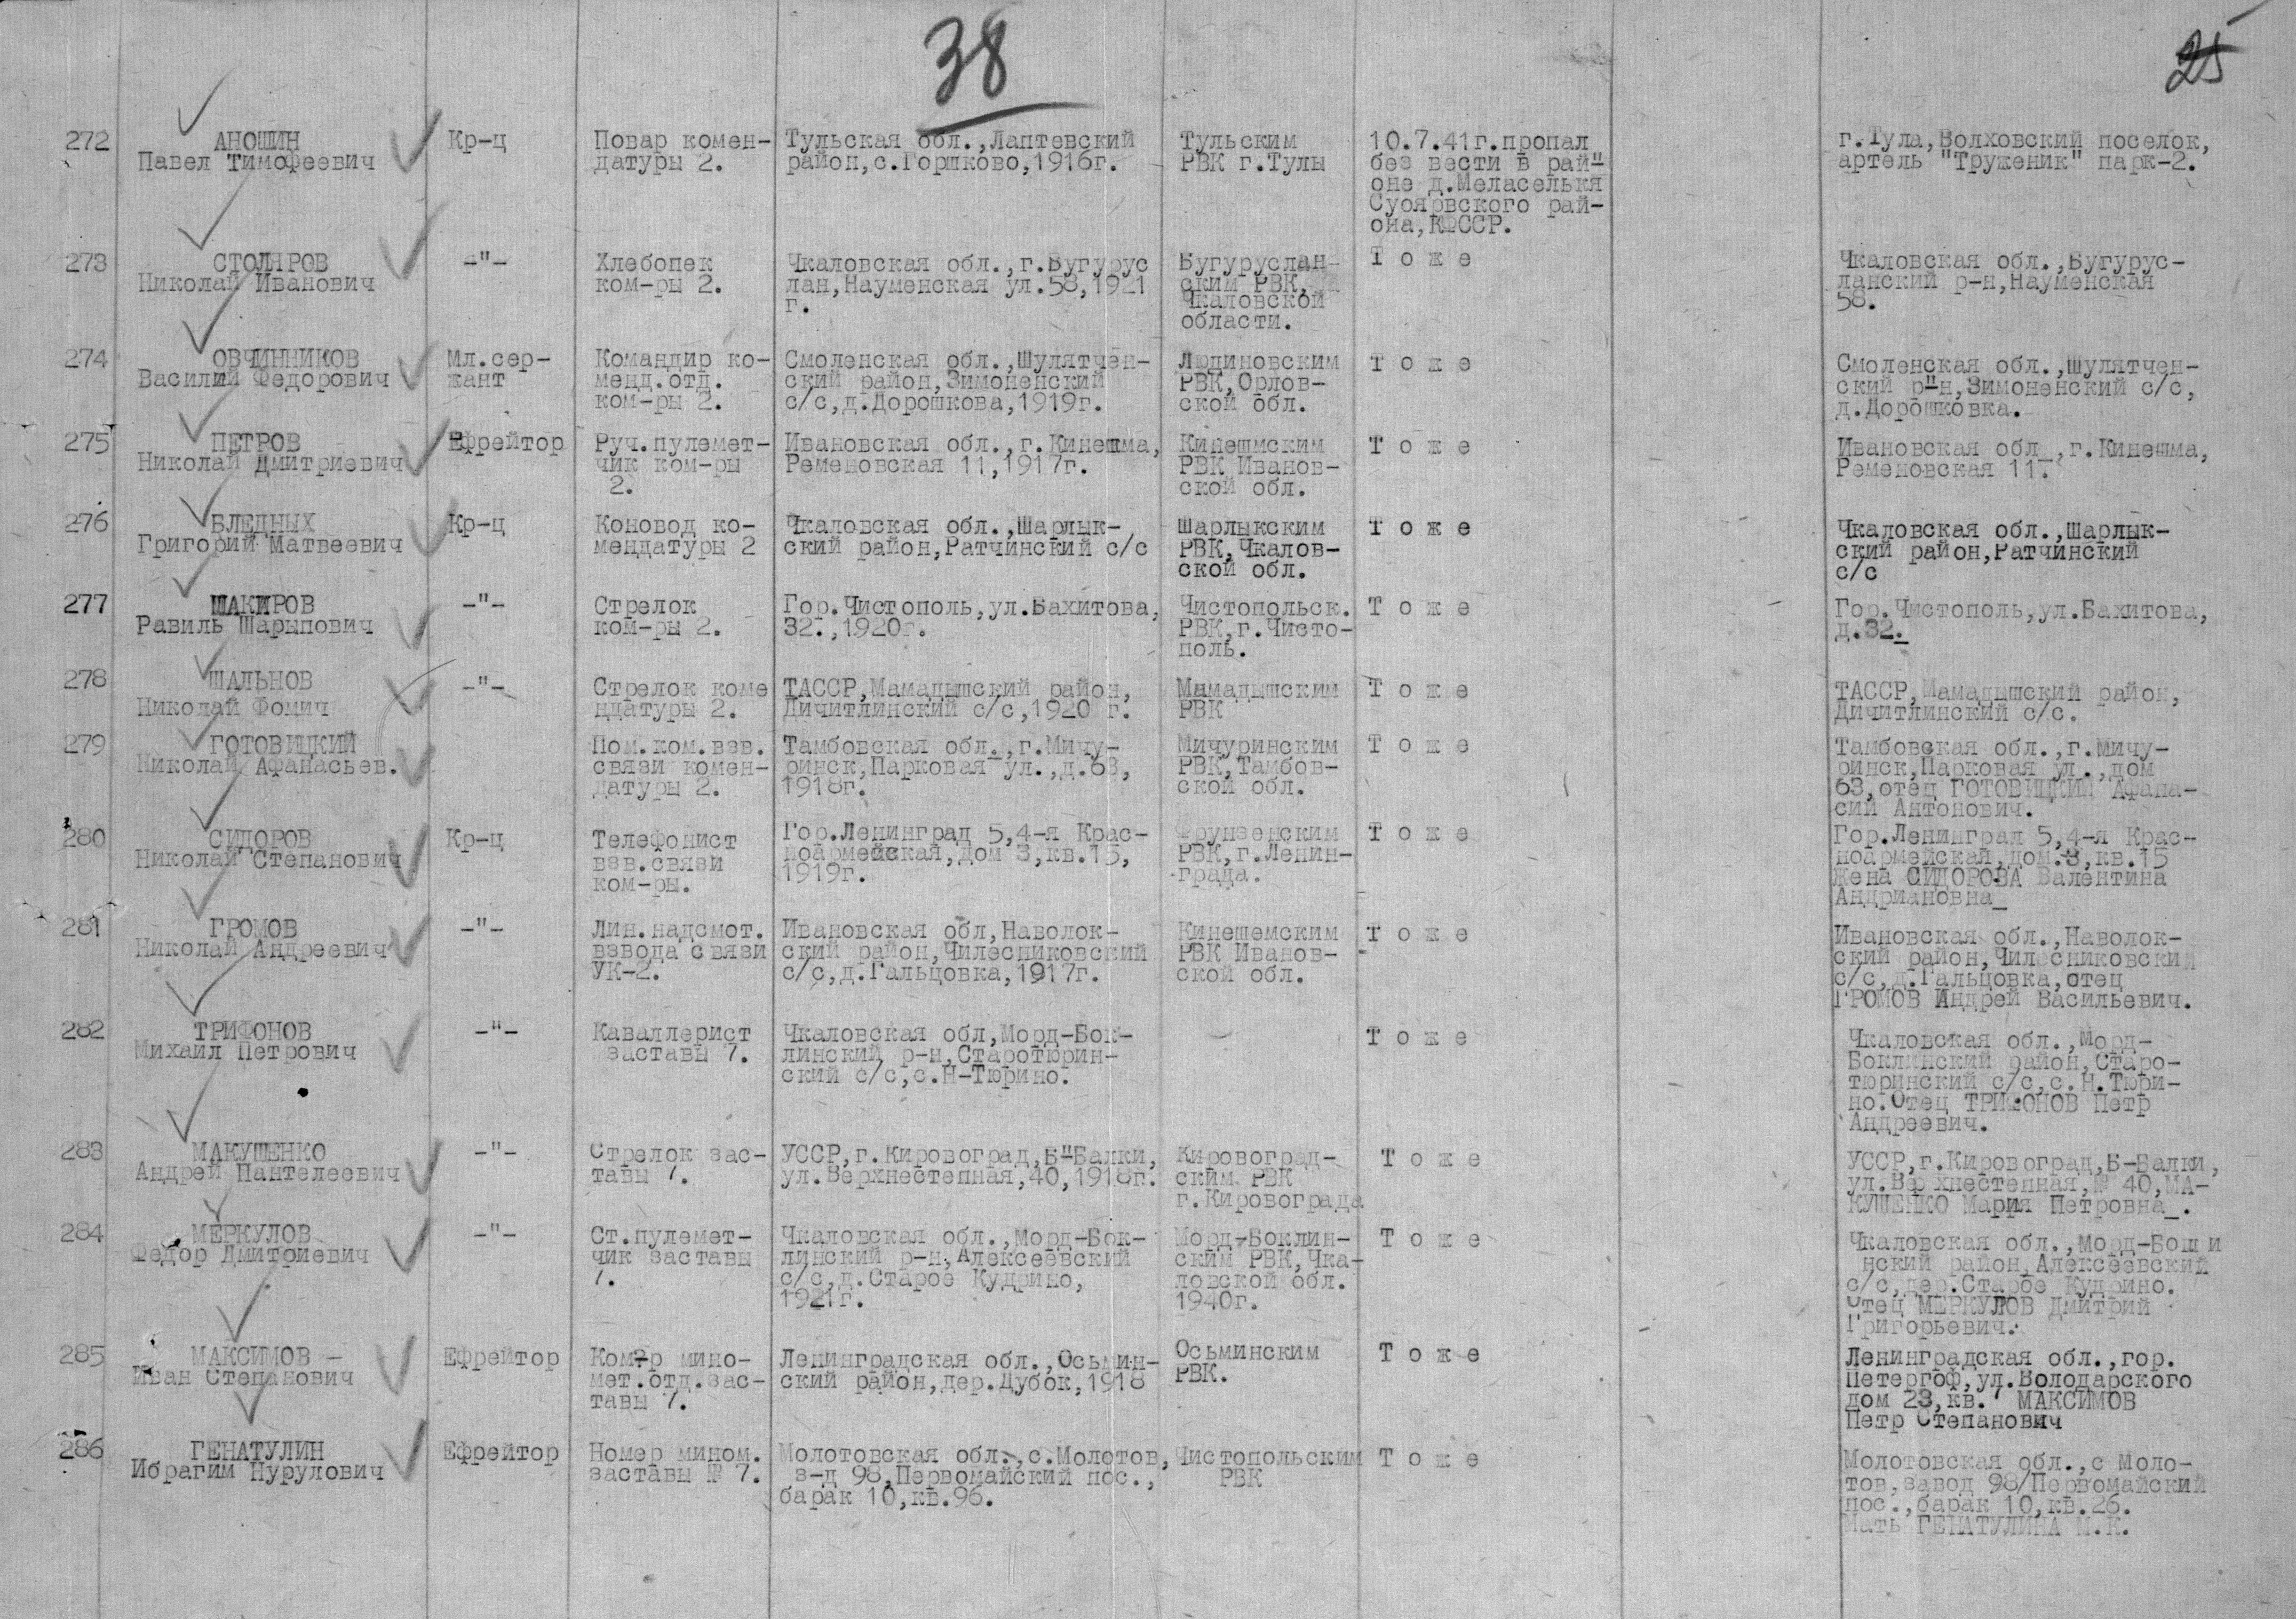 38
25
272
АНОШИН
Павел Тимофеевич
Кр-ц
Повар комен-
датуры 2.
Тульская обл.,Лаптевский
район,с.Горшково,1916г.
Тульским
РВК г.Тулы
10.7.41г.пропал
без вести в рай"
оне д.Меласелькя
Суоярвского рай-
она,КФССР.
г.Тула,Волховский поселок,
артель "Труженик" парк-2.
273
СТОЛЯРОВ
Николай Иванович
-"-
Хлебопек
ком-ры 2.
Чкаловская обл.,г.Бугурус
лан,Науменская ул.58,1921
г.
Бугуруслан-
ским РВК,
Чкаловской
области.
Т о ж е
Чкаловская обл.,Бугурус-
ланский р-н,Науменская
58.
274
ОВЧИННИКОВ
Василий Федорович
Мл.сер-
жант
Командир ко-
менд.отд.
ком-ры 2.
Смоленская обл.,Шулятчен-
ский район,Зимоненский
с/с,д.Дорошкова,1919г.
Людиновским
РВК,Орлов-
ской обл.
Т о ж е
Смоленская обл.,Шулятчен-
ский р"н,Зимоненский с/с,
д.Дорошковка.
275
ПЕТРОВ
Николай Дмитриевич
Ефрейтор
Руч.пулемет-
чик ком-ры
2.
Ивановская обл.,г.Кинешма,
Ременовская 11,1917г.
Кинешмским
РВК Иванов-
ской обл.
Т о ж е
Ивановская обл_,г.Кинешма,
Ременовская 11.
276
БЛЕДНЫХ
Григорий Матвеевич
Кр-ц
Коновод ко-
мендатуры 2
Чкаловская обл.,Шарлык-
ский район,Ратчинский с/с
Шарлыкским
РВК,Чкалов-
ской обл.
Т о ж е
Чкаловская обл.,Шарлык-
ский район,Ратчинский
с/с
277
ШАКИРОВ
Равиль Шарыпович
-"-
Стрелок
ком-ры 2.
Гор.Чистополь,ул.Бахитова,
32.,1920г.
Чистопольск.
РВК,г.Чисто-
поль.
Т о ж е
Гор.Чистополь,ул.Бахитова,
д.32.
278
ШАЛЬНОВ
Николай Фомич
-"-
Стрелок коме
ндатуры 2.
ТАССР,Мамадышский район,
Дичитлинский с/с,1920 г.
Мамадышским
РВК
Т о ж е
ТАССР,Мамадышский район,
Дичитлинский с/с.
279
ГОТОВИЦКИЙ
Николай Афанасьев.
Пом.ком.взв.
связи комен-
датуры 2.
Тамбовская обл.,г.Мичу-
ринск,Парковая ул.,д.63,
1918г.
Мичуринским
РВК,Тамбов-
ской обл.
Т о ж е
Тамбовская обл.,г.Мичу-
ринск,Парковая ул.,дом
63,отец ГОТОВИЦКИЙ Афана-
сий Антонович.
280
СИДОРОВ
Николай Степанович
Кр-ц
Телефонист
взв.связи
ком-ры.
Гор.Ленинград 5,4-я Крас-
ноармейская,дом 3,кв.15,
1919г.
Фрунзенским
РВК,г.Ленин-
града.
Т о ж е
Гор.Ленинград 5,4-я Крас-
ноармейская,дом.3,кв.15
Жена СИДОРОВА Валентина
Андриановна_
281
ГРОМОВ
Николай Андреевич
-"-
Лин.надсмот.
взвода связи
УК-2.
Ивановская обл,Наволок-
ский район,Чилесниковский
с/с,д.Гальцовка,1917г.
Кинешемским
РВК Иванов-
ской обл.
Т о ж е
Ивановская обл.,Наволок-
ский район,Чилесниковский
с/с,д.Гальцовка,отец
ГРОМОВ Андрей Васильевич.
282
ТРИФОНОВ
Михаил Петрович
-"-
Каваллерист
заставы 7.
Чкаловская обл,Морд-Бок-
линский р-н,Старотюрин-
ский с/с,с.Н-Тюрино.
Т о ж е
Чкаловская обл.,Морд-
Боклинский район,Старо-
тюринский с/с,с.Н.Тюри-
но.Отец ТРИФОНОВ Петр
Андреевич.
283
МАКУШЕНКО
Андрей Пантелеевич
-"-
Стрелок зас-
тавы 7.
УССР,г.Кировоград,Б"Балки,
ул.Верхнестепная,40,1918г.
Кировоград-
ским РВК
г.Кировограда
Т о ж е
УССР,г.Кировоград,Б-Балки,
ул.Верхнестепная,№ 40,МА-
КУШЕНКО Мария Петровна_.
284
МЕРКУЛОВ
Федор Дмитриевич
-"-
Ст.пулемет-
чик заставы
7.
Чкаловская обл.,Морд-Бок-
линский р-н,Алексеевский
с/с,д.Старое Кудрино,
1921г.
Морд-Боклин-
ским РВК,Чка-
ловской обл.
1940г.
Т о ж е
Чкаловская обл.,Морд-Бош и
нский район,Алексеевский
с/с,дер.Старое Кудрино.
Отец МЕРКУЛОВ Дмитрий
Григорьевич.
285
МАКСИМОВ -
Иван Степанович
Ефрейтор
Ком-р мино-
мет.отд.зас-
тавы 7.
Ленинградская обл.,Осьмин-
ский район,дер.Дубок,1918
Осьминским
РВК.
Т о ж е
Ленинградская обл.,гор.
Петергоф,ул.Володарского
дом 23,кв.7 МАКСИМОВ
Петр Степанович
286
ГЕНАТУЛИН
Ибрагим Нурулович
Ефрейтор
Номер мином.
заставы № 7.
Молотовская обл.,с.Молотов,
з-д 98,Первомайский пос.,
барак 10,кв.96.
Чистопольским
РВК
Т о ж е
Молотовская обл.,с Моло-
тов,завод 98/Первомайский
пос.,барак 10,кв.26.
Мать ГЕНАТУЛИНА М.К.